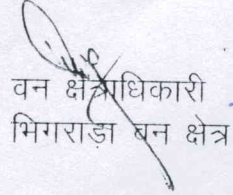 वन क्षेत्राधिकारी
भिंगराड़ा वन क्षेत्र